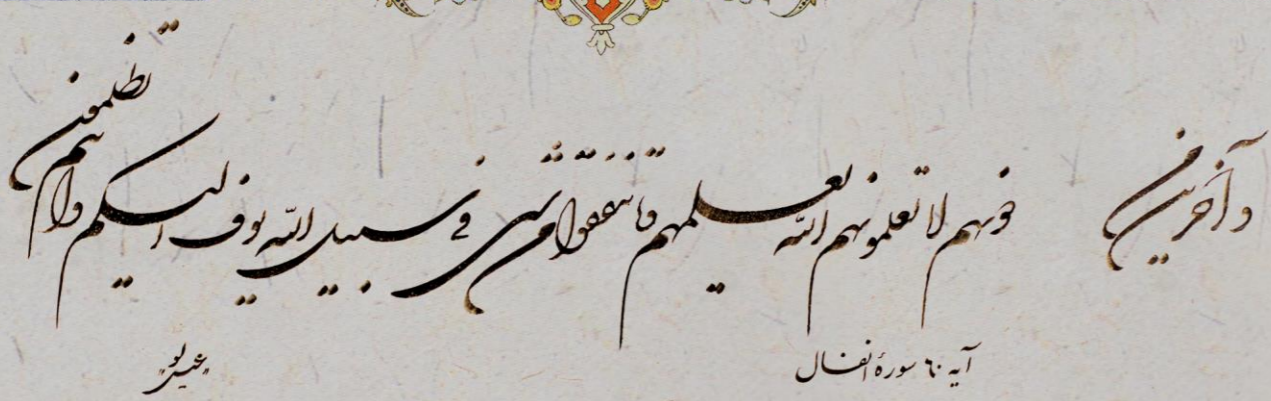 وآخرین من دونهم لا تعلمونهم الله یعلمهم وما تنفقوا من شی فی سبیل الله یوف الیکم وانتم تظلمون
آیه ٦٠ سورۀ انفال